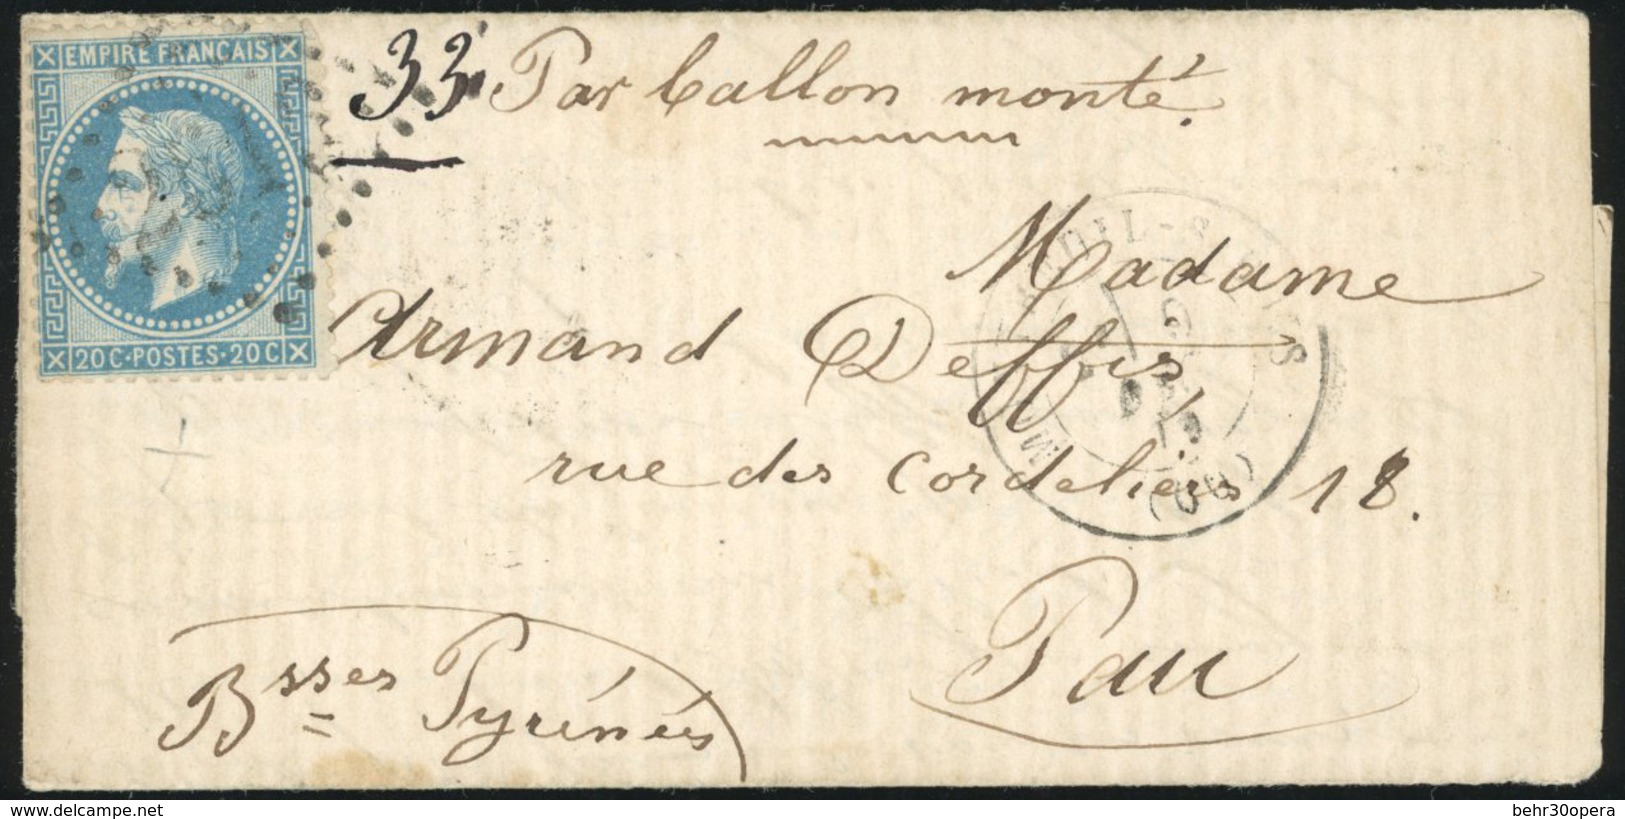 EMPIRE FRANCAIS
20 C·POSTES·20 C
33 Par ballon monté.
Madame
Armand Deffis
rue des Cordeliers 18.
Pau
Bsses Pyrénées
(60)
www.delcampe.net
behr30opera